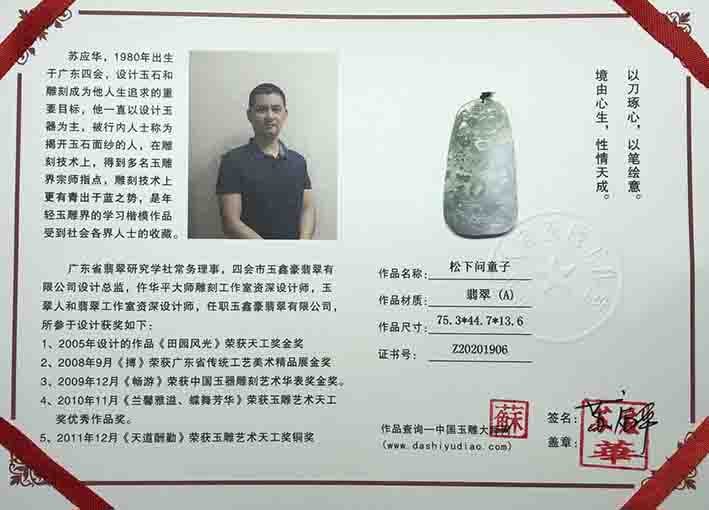 苏应华，1980年出生
于广东四会，设计玉石和
雕刻成为他人生追求的重
要目标，他一直以设计玉
器为主，被行内人士称为
揭开玉石面纱的人，在雕
刻技术上，得到多名玉雕
界宗师指点，雕刻技术上
更有青出于蓝之势，是年
轻玉雕界的学习楷模作品
受到社会各界人士的收藏。
广东省翡翠研究学社常务理事，四会市玉鑫豪翡翠有
限公司设计总监，仵华平大师雕刻工作室资深设计师，玉
翠人和翡翠工作室资深设计师，任职玉鑫豪翡翠有限公司，
所参于设计获奖如下：
1、2005年设计的作品《田园风光》荣获天工奖金奖
2、2008年9月《搏》荣获广东省传统工艺美术精品展金奖
3、2009年12月《畅游》荣获中国玉器雕刻艺术华表奖金奖。
4、2010年11月《兰馨雅溢、蝶舞芳华》荣获玉雕艺术天工
奖优秀作品奖。
5、2011年12月《天道酬勤》荣获玉雕艺术天工奖铜奖
以刀琢心，以笔绘意。
境由心生，性情天成。
作品名称: 松下问童子
作品材质: 翡翠 (A)
作品尺寸: 75.3*44.7*13.6
证书号: Z20201906
作品查询—中国玉雕大
(www.dashiyudiao.com)
蘇
签名:
盖章:
華